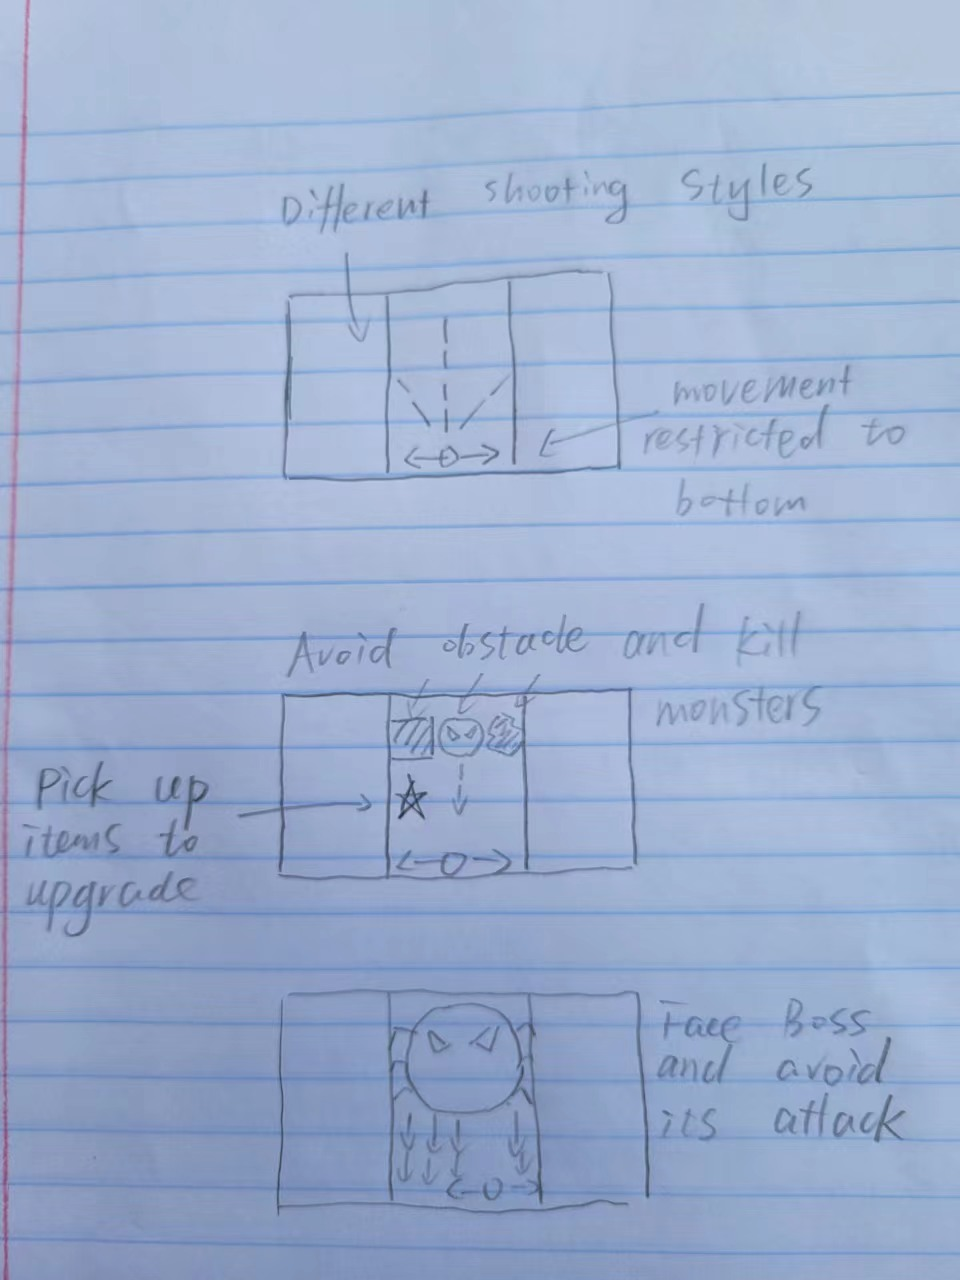 Different shooting styles
movement
restricted to
bottom
Avoid obstacle and kill
monsters
Pick up
items to
upgrade
Face Boss
and avoid
its attack